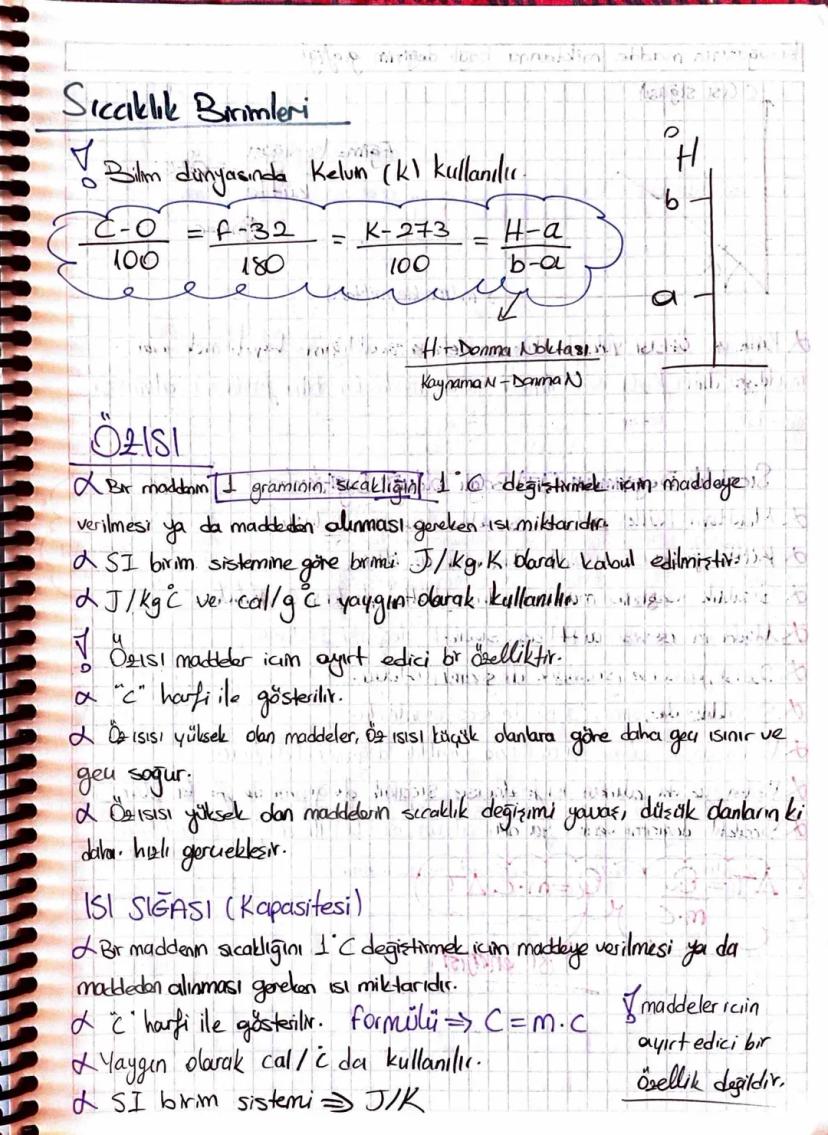 Sıcaklık Birimleri
! Bilim dünyasında Kelvin (K) kullanılır.
C-0/100 = F-32/180 = K-273/100 = H-a/b-a
°H
b
a
H-Donma Noktası
Kaynama N - Donma N
ÖZISI
α Bir maddenin 1 gramının, sıcaklığını 1°C değiştirmek için maddeye
verilmesi ya da maddeden alınması gereken ısı miktarıdır.
α SI birim sistemine göre birimi J/kg.K olarak kabul edilmiştir.
α J/kg°C ve cal/g°C yaygın olarak kullanılır.
! Özısı maddeler için ayırt edici bir özelliktir.
α "c" harfi ile gösterilir.
α Öz ısısı yüksek olan maddeler, öz ısısı küçük olanlara göre daha geç ısınır ve
geç soğur.
α Öz ısısı yüksek olan maddelerin sıcaklık değişimi yavaş, düşük olanların ki
daha hızlı gerçekleşir.
ISI SIĞASI (Kapasitesi)
α Bir maddenin sıcaklığını 1°C değiştirmek için maddeye verilmesi ya da
maddeden alınması gereken ısı miktarıdır.
α "C" harfi ile gösterilir. formülü ⇒ C = m.c
α Yaygın olarak cal/°C da kullanılır.
α SI birim sistemi ⇒ J/K
! maddeler için
ayırt edici bir
özellik değildir.